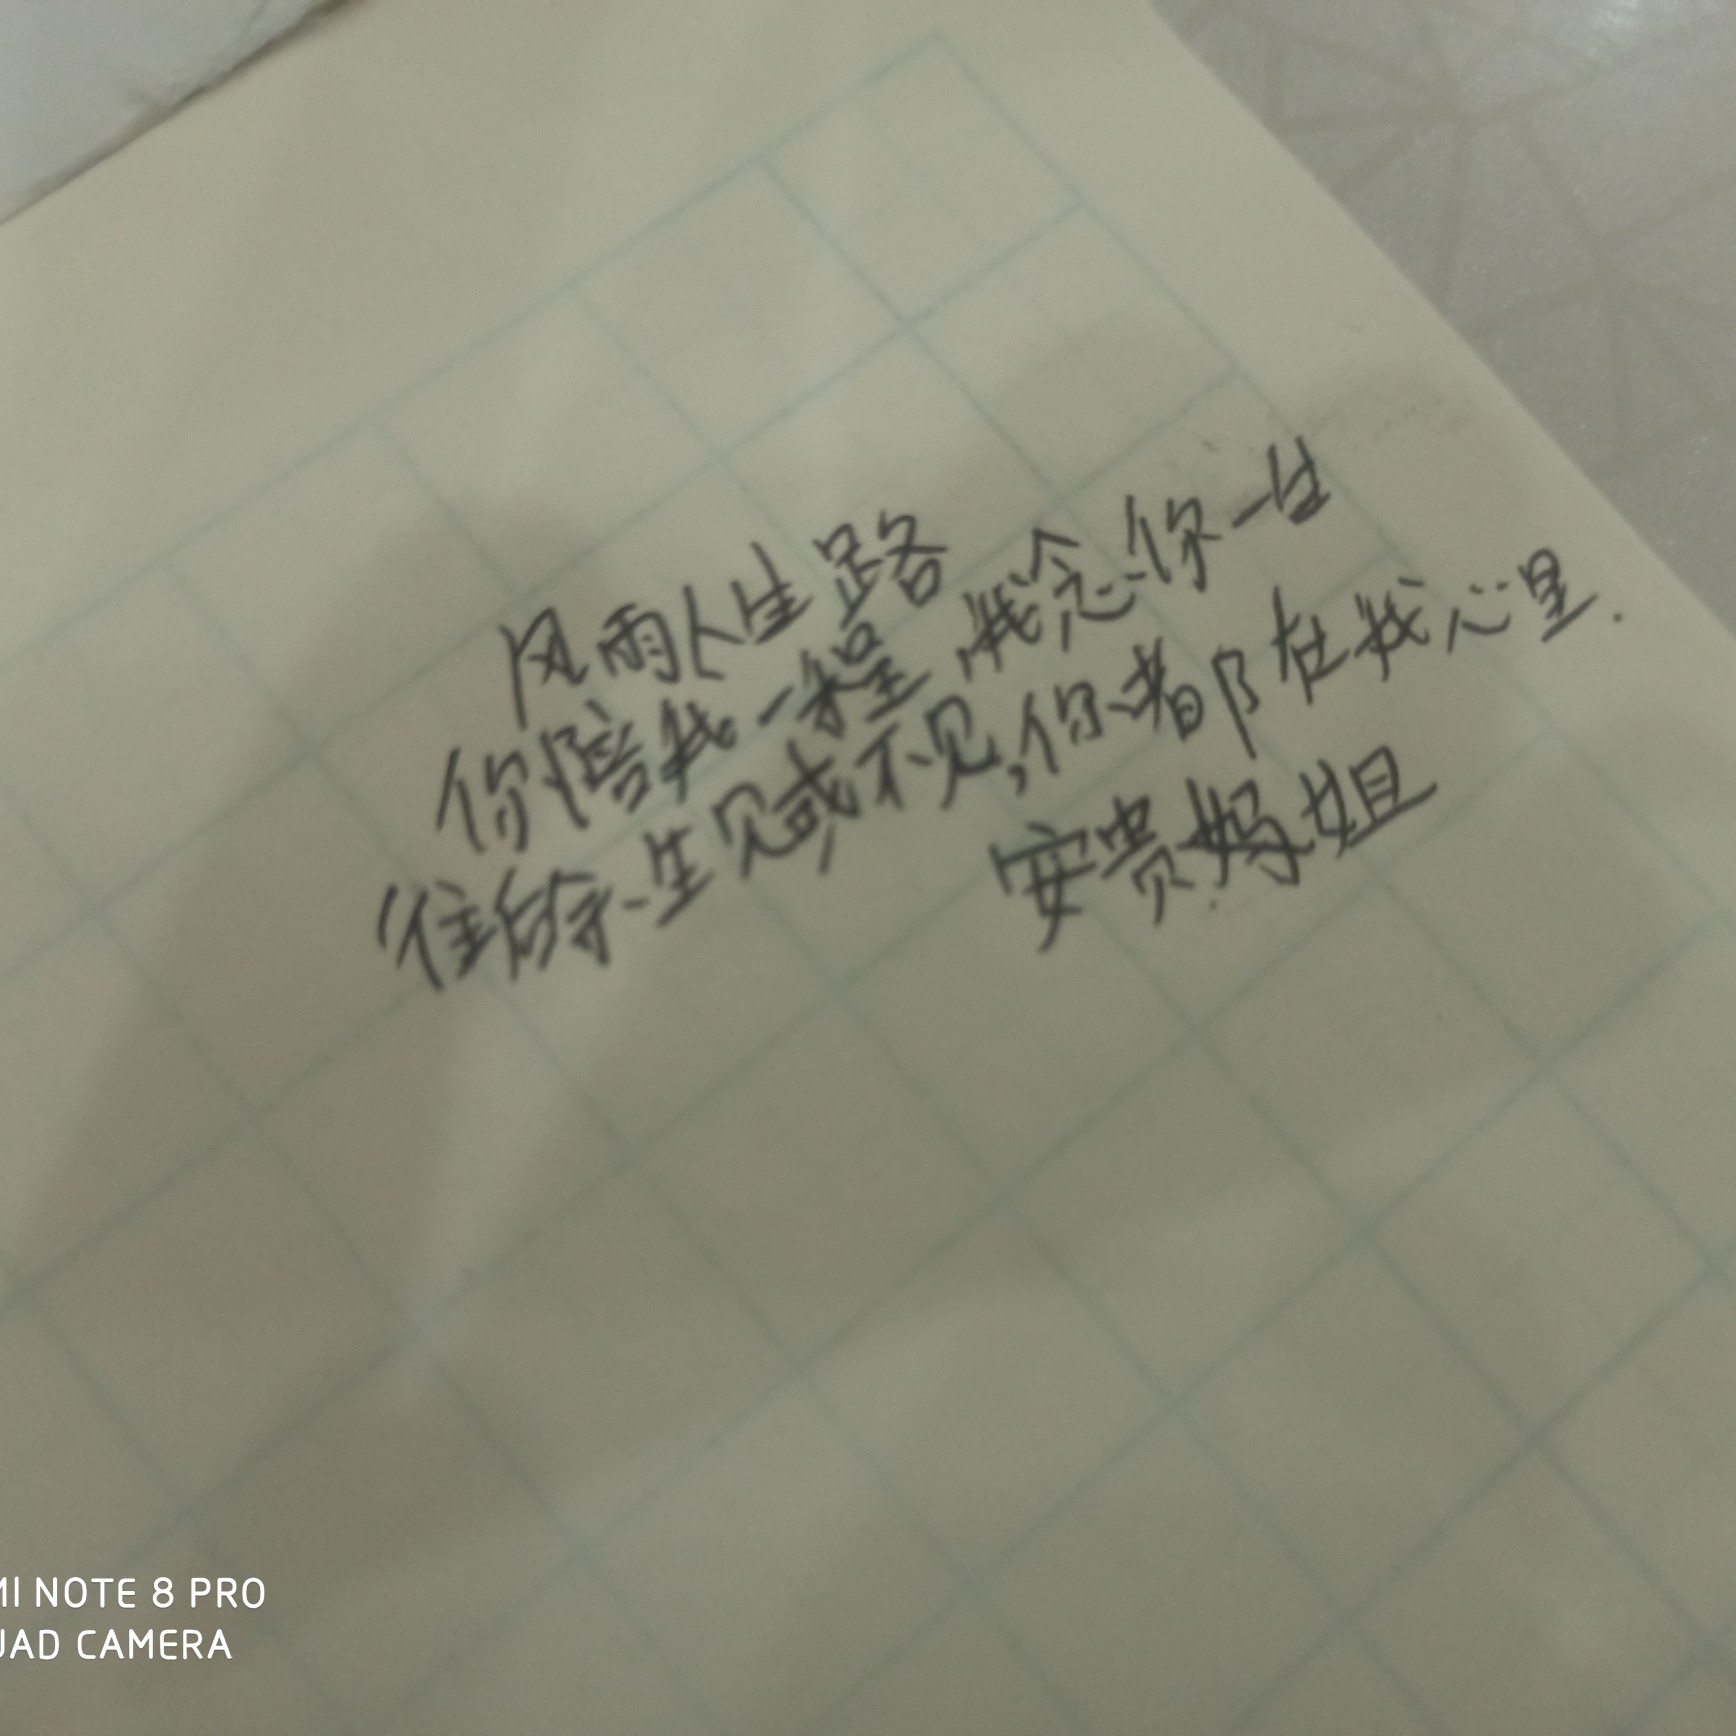 风雨人生路
你陪我一程,我念你一生
往后余生见或不见,你都在我心里.
安贵妈姐
MI NOTE 8 PRO
UAD CAMERA